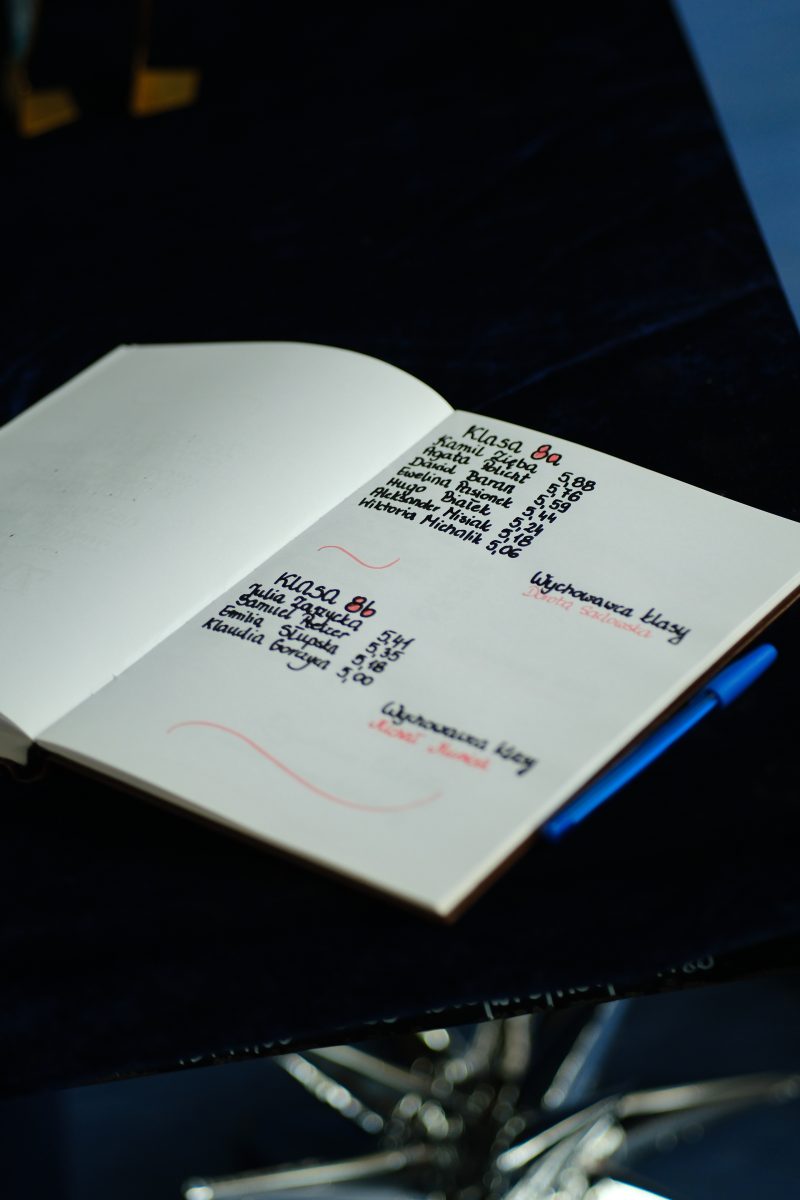 Klasa 8a
Kamil Zięba 5,88
Agata Policht 5,76
Dawid Baran 5,59
Ewelina Pasionek 5,44
Hugo Białek 5,24
Aleksander Misiak 5,18
Wiktoria Michalik 5,06
Wychowawca klasy
Dorota Sadowska
Klasa 8b
Julia Zaszycka 5,41
Samuel 5,35
Emilia Słupska 5,18
Klaudia Gorczyca 5,00
Wychowawca klasy
Michał